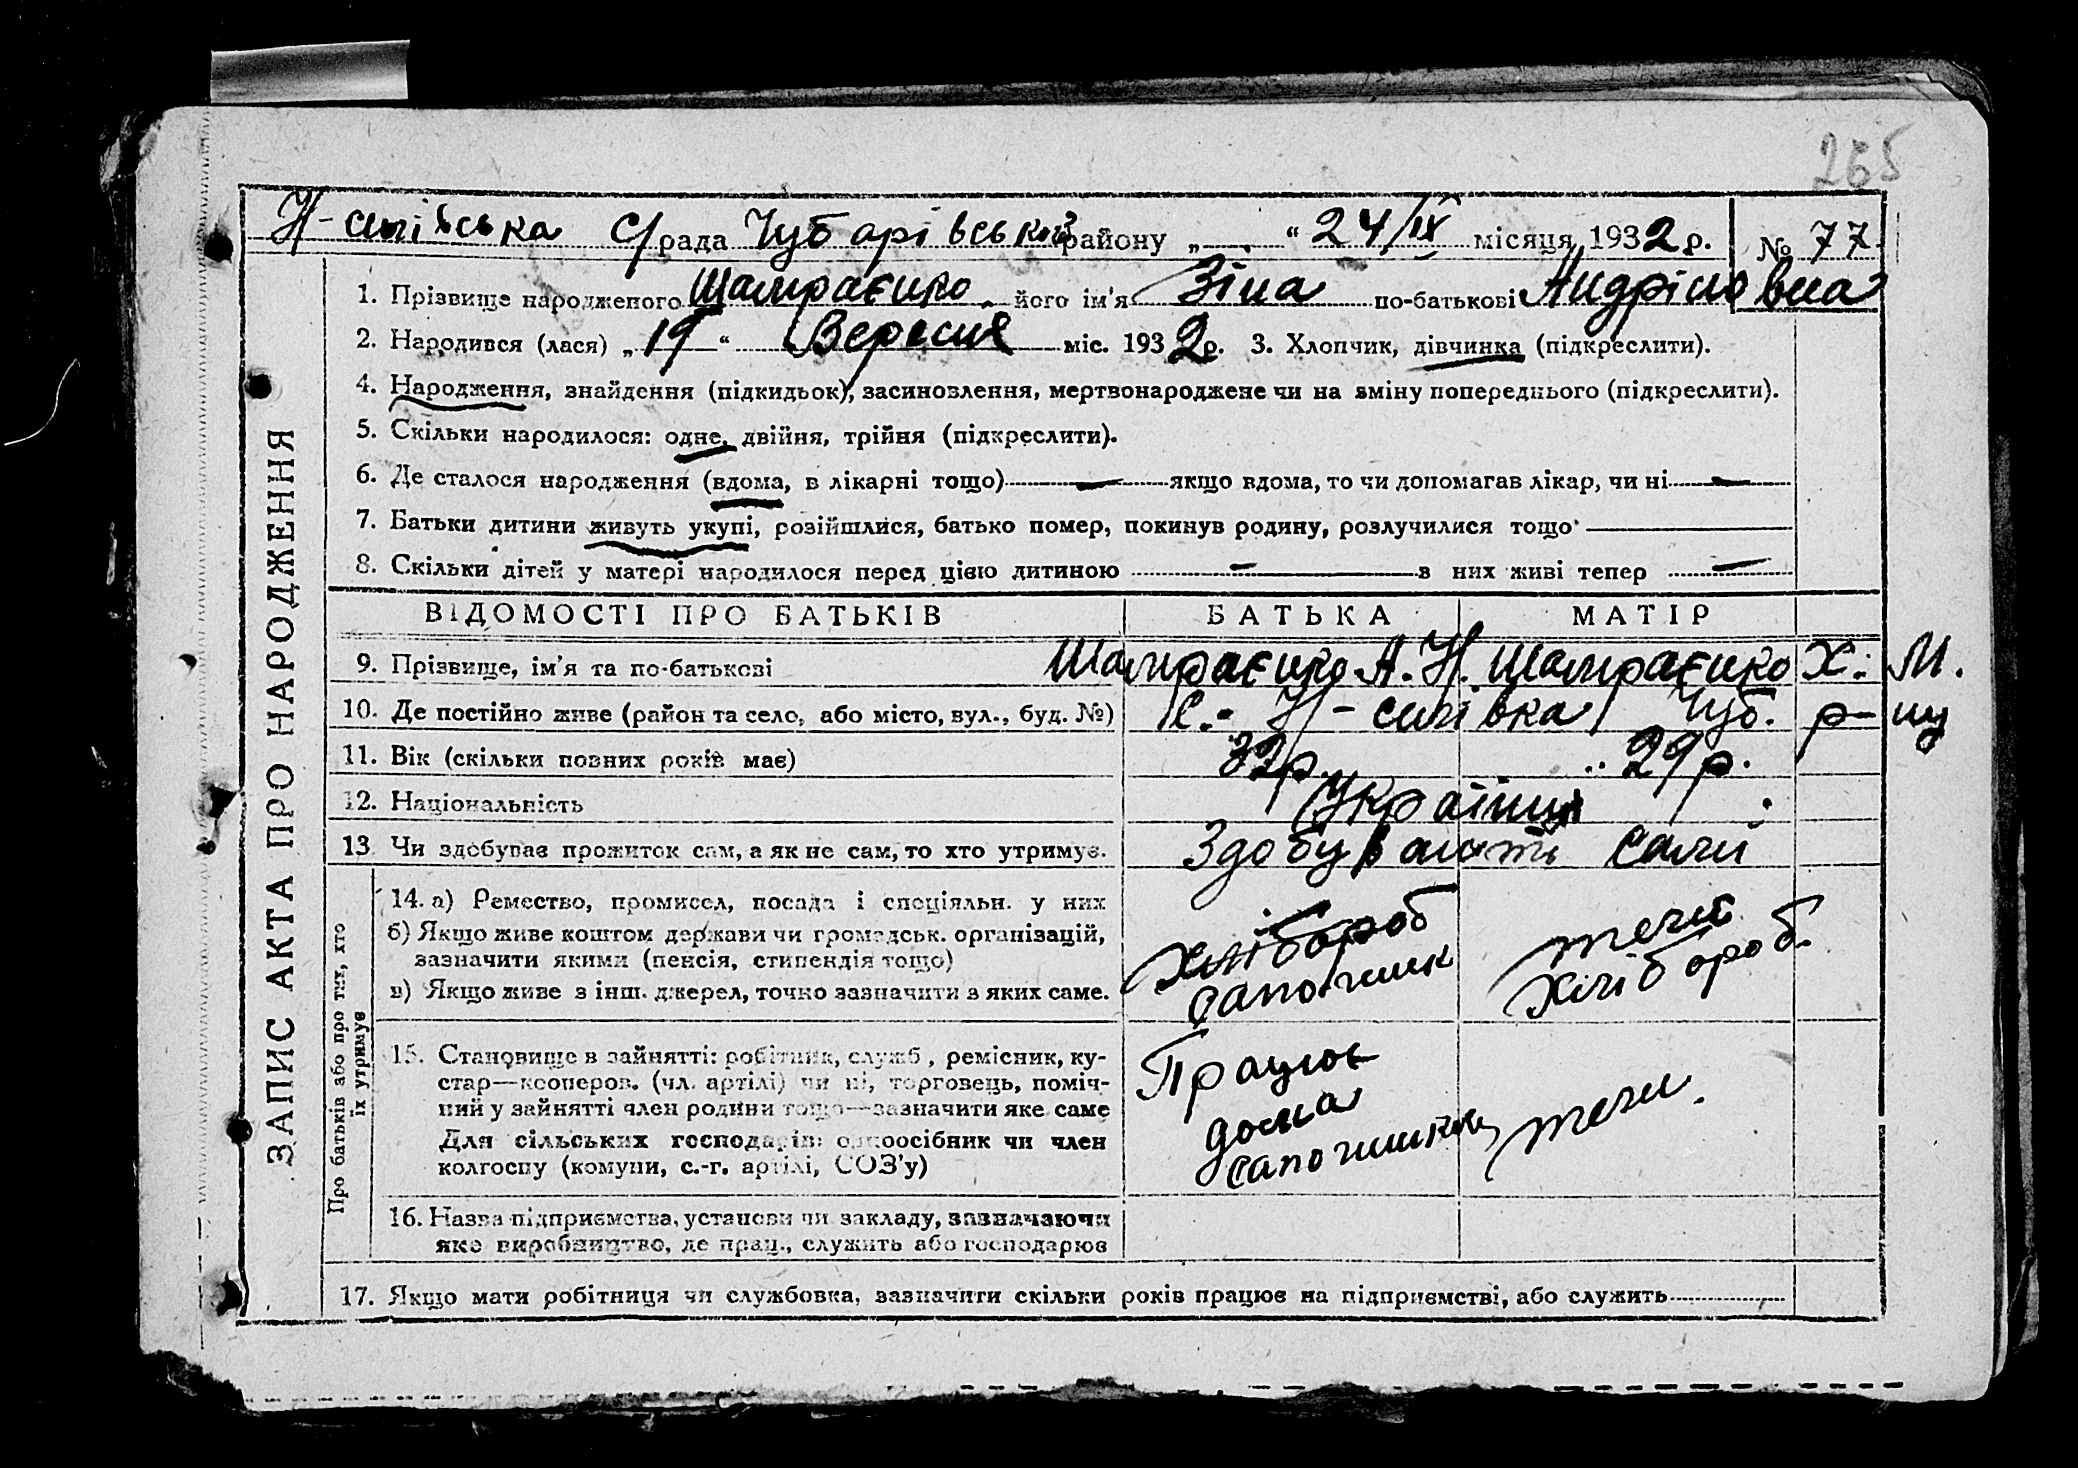 265
Н-силівська С/рада Чубарівськой району „ “ 24/IX місяця 1932 р. № 77.
1. Прізвище народженого Шамраєнко його ім'я Зіна по-батькові Андріановна
2. Народився (лася) „19“ Вересня міс. 1932 р. 3. Хлопчик, дівчинка (підкреслити).
4. Народження, знайдення (підкидьок), засиновлення, мертвонароджене чи на зміну попереднього (підкреслити).
5. Скільки народилося: одне, двійня, трійня (підкреслити).
6. Де сталося народження (вдома, в лікарні тощо) — якщо вдома, то чи допомагав лікар, чи ні —
7. Батьки дитини живуть укупі, розійшлися, батько помер, покинув родину, розлучилися тощо
8. Скільки дітей у матері народилося перед цією дитиною — в них живі тепер —
ВІДОМОСТІ ПРО БАТЬКІВ БАТЬКА МАТІР
9. Прізвище, ім'я та по-батькові Шамраєнко А. Н. Шамраєнко Х. М.
10. Де постійно живе (район та село, або місто, вул., буд. №) С. Н-силівка Чуб. р-ну
11. Вік (скільки повних років має) 32 р. 29 р.
12. Національність Українці
13. Чи здобуває прожиток сам, а як не сам, то хто утримує. Здобувають сами
14. а) Ремество, промисел, посада і спеціяльн. у них хлібороб теж
б) Якщо живе коштом держави чи громадськ. організацій, сапожник хлібороб.
зазначити якими (пенсія, стипендія тощо)
в) Якщо живе з інш. джерел, точно зазначити з яких саме.
15. Становище в зайнятті: робітник, служб., ремісник, ку-
стар—кооперов. (чл. артілі) чи ні, торговець, поміч-
ний у зайнятті член родини тощо—зазначити яке саме
Для сільських господарів: одноосібник чи член
колгоспу (комуни, с.-г. артілі, СОЗ'у)
Працює
дома
16. Назва підприємства, установи чи закладу, зазначаючи
яке виробництво, де прац., служить або господарює
17. Якщо мати робітниця чи службовка, зазначити скільки років працює на підприємстві, або служить
ЗАПИС АКТА ПРО НАРОДЖЕННЯ
Про батьків або про тих, хто
їх утримує